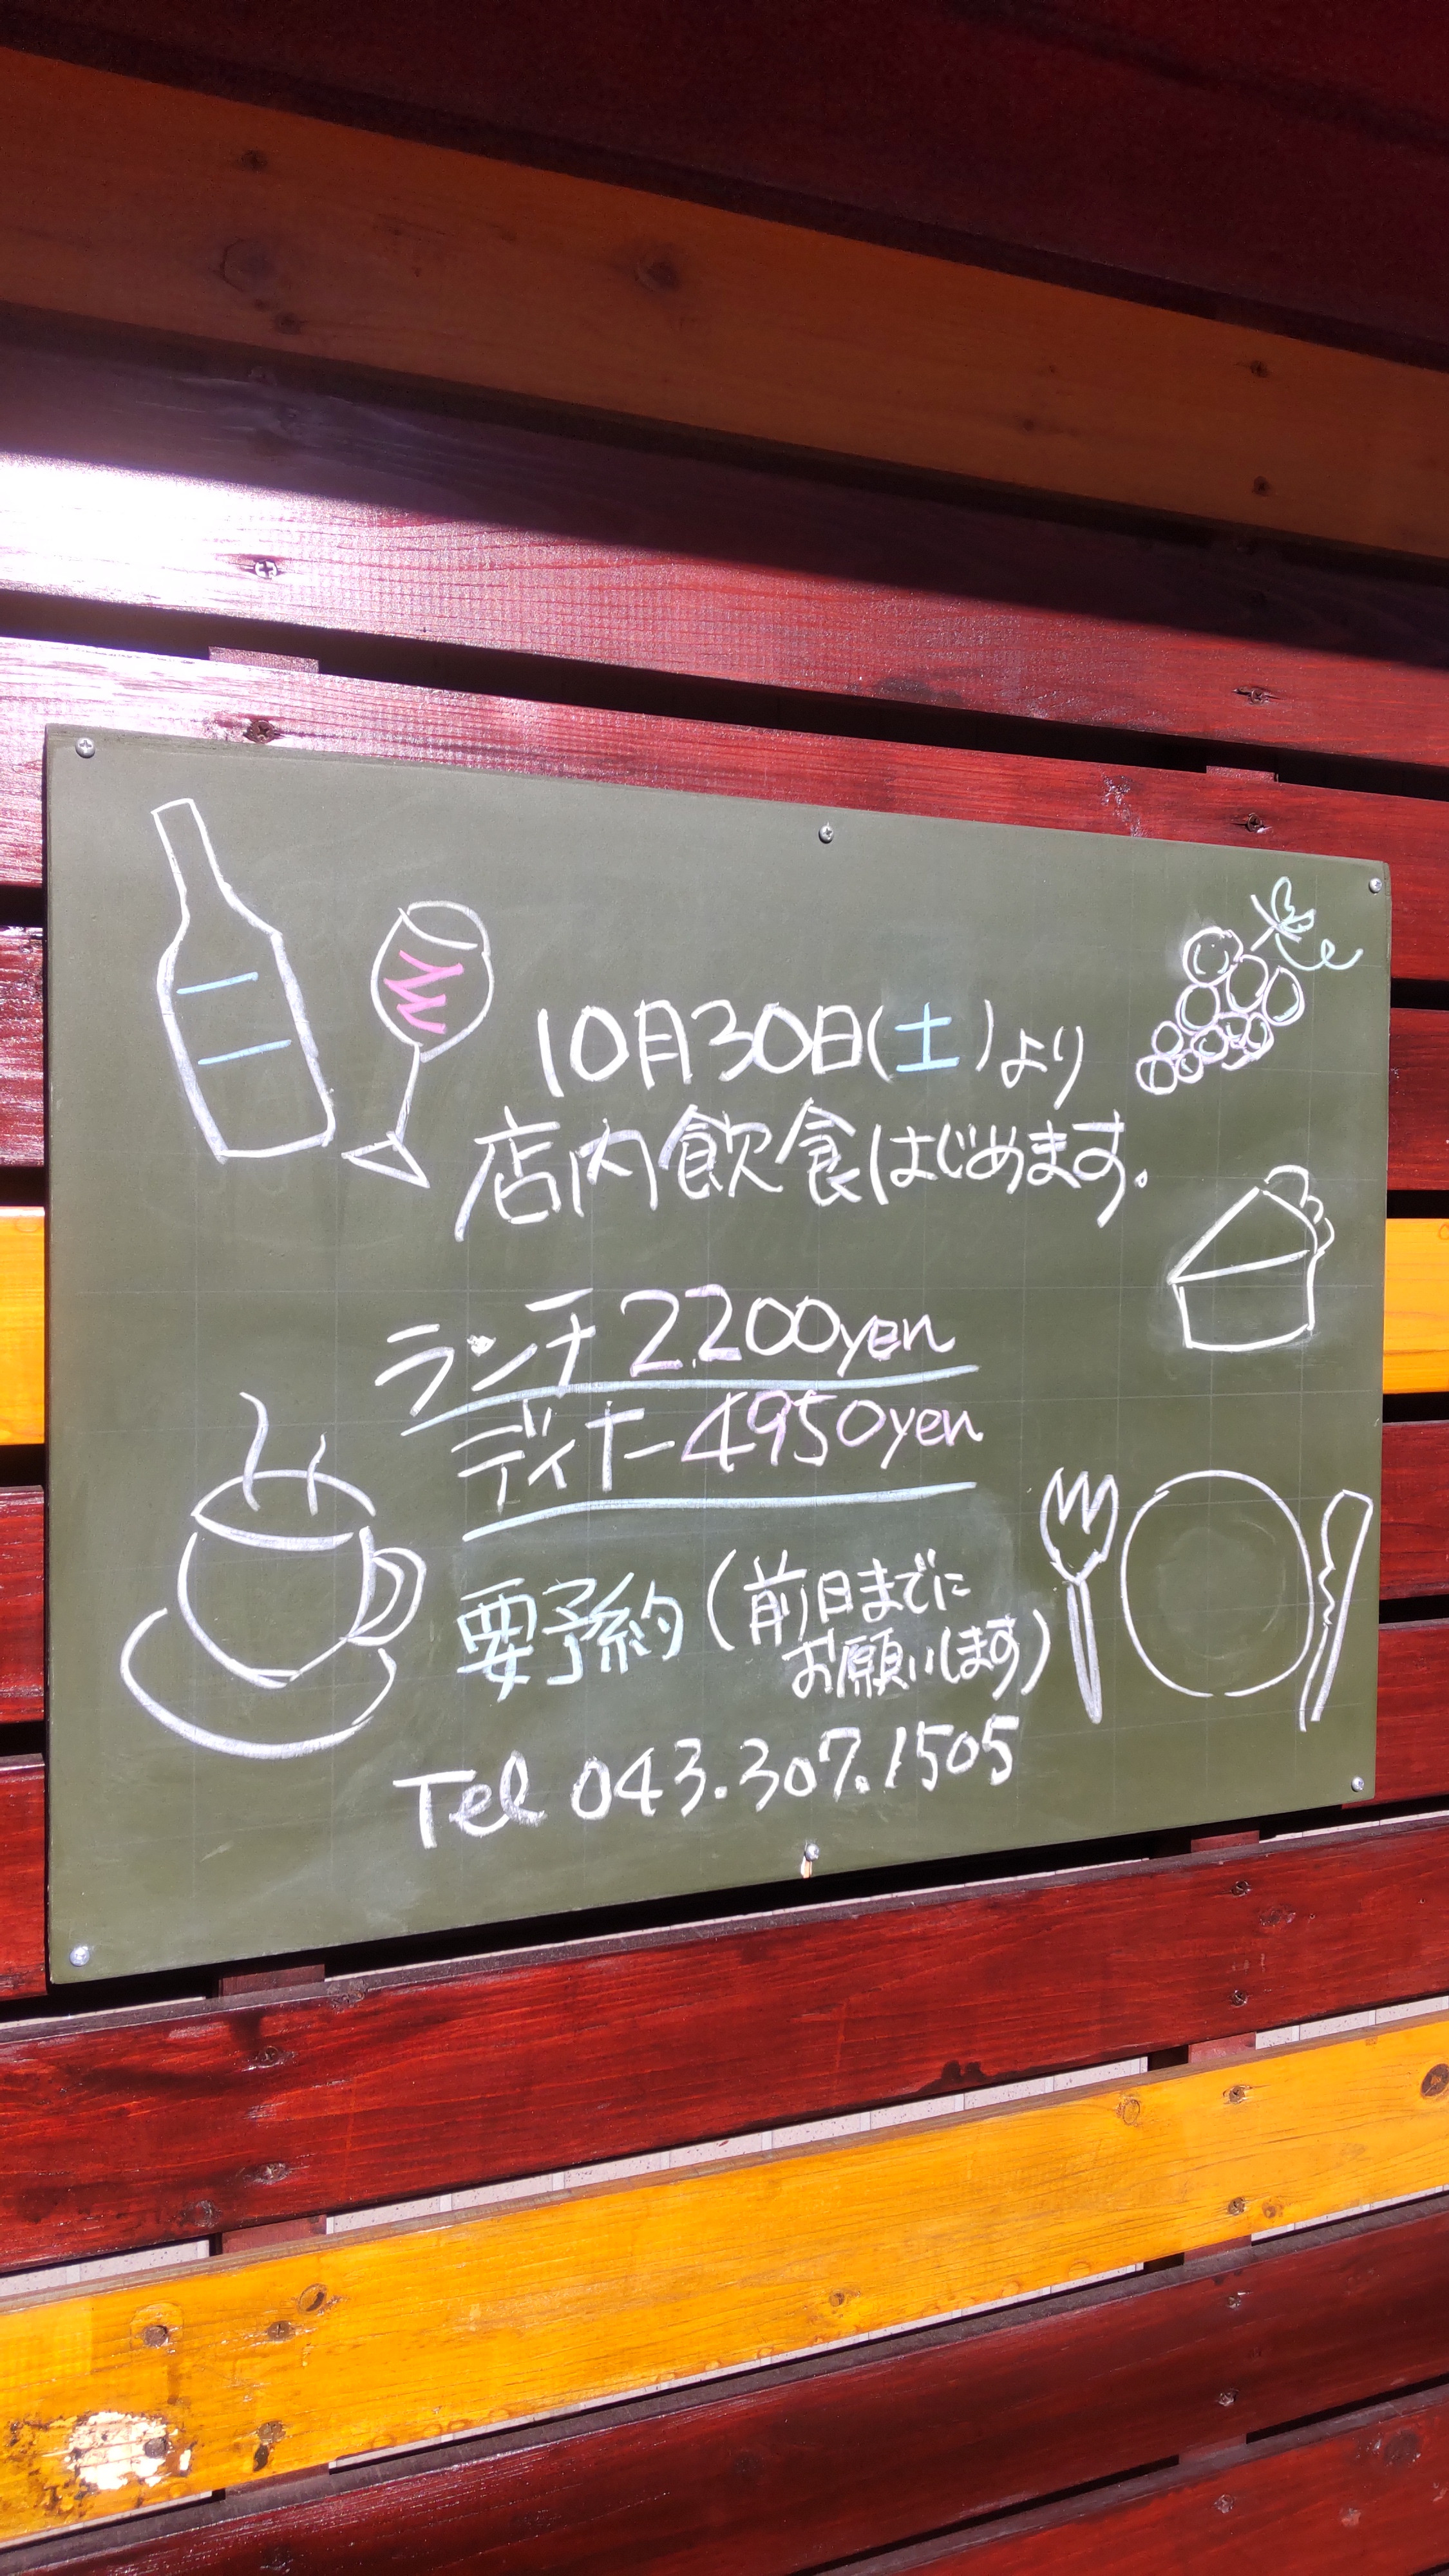 10月30日(土)より
店内飲食はじめます。
ランチ 2,200yen
ディナー 4950yen
要予約(前日までに
お願いします)
Tel 043.307.1505